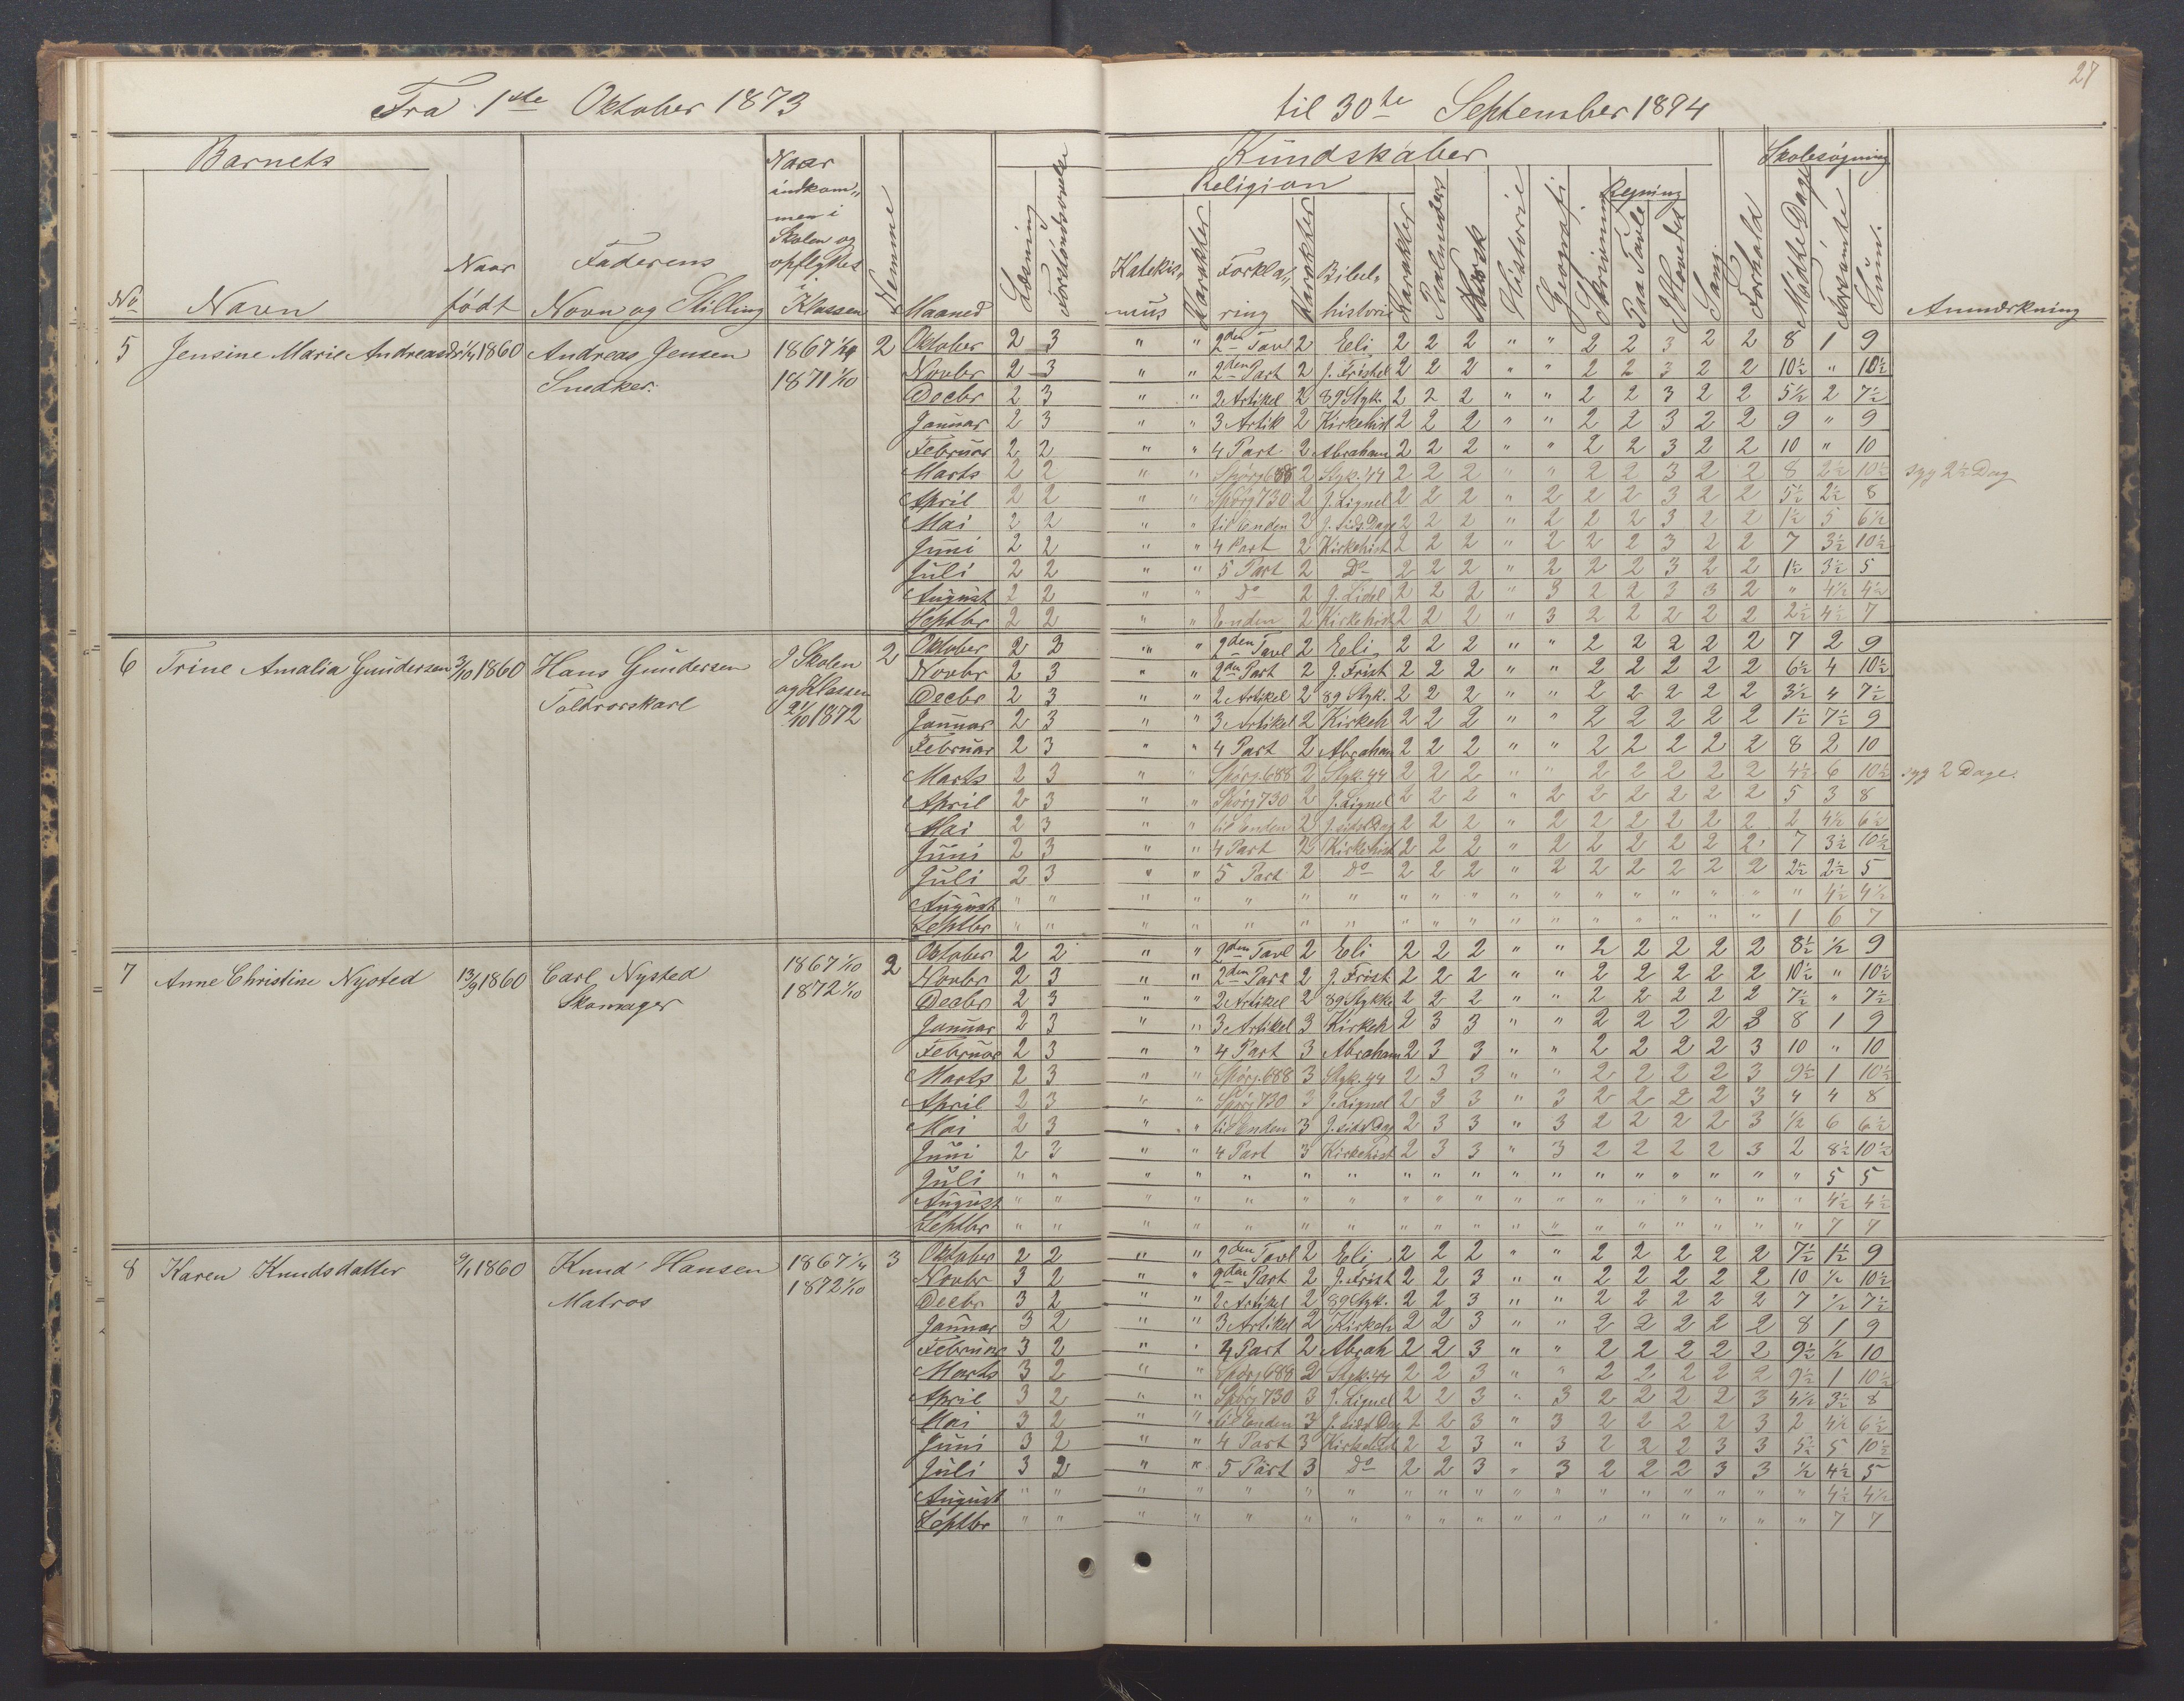 27
Fra 1ste Oktober 1873 til 30te September 1894
Barnets Kundskaber Skolesøgning
No Navn Naar født Faderens Navn og Stilling Naar indkommen i Skolen og opflyttet i Klassen Nemme Maaned Læsning Religion Katekismus Karakter Forklaring Karakter Bibelhistorie Karakter Psalmevers Norsk Historie Geografi Skrivning Regning Paa Tavle I Hovedet Sang Forhold Mødte Dage Forsømte Sum. Anmærkning
5 Jensine Marie Andreasdr 1860 Andreas Jensen 1867 2 Oktober 2 3 " " 2den Tavl 2 Eli 2 2 2 " " 2 2 3 2 2 8 1 9
Snedker. 1871 1/10 Novbr 2 3 " " 2den Part 2 J. Fristel 2 2 2 " " 2 2 3 2 2 10½ " 10½
Decbr 2 3 " " 2 Artikel 2 89 Styk. 2 2 2 " " 2 2 3 2 2 5½ 2 7½
Januar 2 3 " " 3 Artik 2 Kirkehist 2 2 2 " " 2 2 3 2 2 9 " 9
Februar 2 2 " " 4 Part 2 Abraham 2 2 2 " " 2 2 3 2 2 10 " 10
Marts 2 2 " " Spørg 688 2 Styk. 44 2 2 2 " " 2 2 3 2 2 8 2½ 10½ syg 2½ Dag
April 2 2 " " Spørg 730 2 J. Lignel 2 2 2 " 2 2 2 3 2 2 5½ 2½ 8
Mai 2 2 " " til Enden 2 J. sids Dage 2 2 2 " 2 2 2 3 2 2 1½ 5 6½
Juni 2 2 " " 4 Part 2 Kirkehist 2 2 2 " 2 2 2 3 2 2 7 3½ 10½
Juli 2 2 " " 5 Part 2 Do 2 2 2 " 2 2 2 3 2 2 1½ 3½ 5
August 2 2 " " Do 2 J. Lidel 2 2 2 " 3 2 2 3 3 2 " 4½ 4½
Septbr 2 2 " " Enden 2 Kirkehist 2 2 2 " 3 2 2 2 2 2 2½ 4½ 7
6 Trine Amalia Gundersen 3/10 1860 Hans Gundersen I Skolen 2 Oktober 2 3 " " 2den Tavl 2 Eli 2 2 2 " " 2 2 2 2 2 7 2 9
Toldrorskarl og Klassen Novbr 2 3 " " 2den Part 2 J. Frist 2 2 2 " " 2 2 2 2 2 6½ 4 10½
21/10 1872 Decbr 2 3 " " 2 Artikel 2 89 Styk. 2 2 2 " " 2 2 2 2 2 3½ 4 7½
Januar 2 3 " " 3 Artikel 2 Kirkeh 2 2 2 " " 2 2 2 2 2 1½ 7½ 9
Februar 2 3 " " 4 Part 2 Abraham 2 2 2 " " 2 2 2 2 2 8 2 10
Marts 2 3 " " Spørg. 688 2 Styk. 44 2 2 2 " " 2 2 2 2 2 4½ 6 10½ syg 2 Dage.
April 2 3 " " Spørg 730 2 J. Lignel 2 2 2 " 2 2 2 2 2 2 5 3 8
Mai 2 3 " " til Enden 2 J. sids Dag 2 2 2 " 2 2 2 2 2 2 2 4½ 6½
Juni 2 3 " " 4 Part 2 Kirkehist 2 2 2 " 2 2 2 2 2 2 7 3½ 10½
Juli 2 3 " " 5 Part 2 Do 2 2 2 " 2 2 2 2 2 2 2½ 2½ 5
August " " " " " " " " " " " " " " " " " " 4½ 4½
Septbr " " " " " " " " " " " " " " " " " 1 6 7
7 Anne Christine Nysted 13/9 1860 Carl Nysted 1867 1/10 2 Oktober 2 2 " " 2den Tavl 2 Eli 2 2 2 " " 2 2 2 2 2 8½ ½ 9
Skomager 1872 1/10 Novbr 2 3 " " 2den Part 2 J. Frist 2 2 2 " " 2 2 2 2 2 10½ " 10½
Decbr 2 3 " " 2 Artikel 2 89 Stykke 2 2 2 " " 2 2 2 2 2 7½ " 7½
Januar 2 3 " " 3 Artikel 3 Kirkeh 2 3 3 " " 2 2 2 2 3 8 1 9
Februar 2 3 " " 4 Part 3 Abraham 2 3 3 " " 2 2 2 2 3 10 " 10
Marts 2 3 " " Spørg. 688 3 Styk. 44 2 3 3 " " 2 2 2 2 3 9½ 1 10½
April 2 3 " " Spørg 730 3 J. Lignel 2 3 3 " 3 2 2 2 2 3 4 4 8
Mai 2 3 " " til Enden 3 J. sids Dag 2 3 3 " 3 2 2 2 2 3 ½ 6 6½
Juni 2 3 " " 4 Part 3 Kirkehist 2 3 3 " 3 2 2 2 2 3 2 8½ 10½
Juli " " " " " " " " " " " " " " " " " " 5 5
August " " " " " " " " " " " " " " " " " " 4½ 4½
Septbr " " " " " " " " " " " " " " " " " " 7 7
8 Karen Knudsdatter 9/1 1860 Knud Hansen 1867 1/4 3 Oktober 2 2 " " 2den Tavl 2 Eli 2 2 2 " " 2 2 2 2 2 7½ 1½ 9
Matros 1872 1/10 Novbr 3 2 " " 2den Part 2 J. Frist 2 2 3 " " 2 2 2 2 2 10 ½ 10½
Decbr 3 2 " " 2 Artikel 2 89 Styk. 2 2 3 " " 2 2 2 2 2 7 ½ 7½
Januar 3 2 " " 3 Artikel 2 Kirkeh 2 2 3 " " 2 2 2 2 2 8 1 9
Februar 3 2 " " 4 Part 2 Abrah 2 2 3 " " 2 2 2 2 2 9½ ½ 10
Marts 3 2 " " Spørg 689 2 Styk. 44 2 2 3 " " 2 2 2 2 2 9½ 1 10½
April 3 2 " " Spørg 730 3 J. Lignel 2 2 3 " 3 2 2 2 2 3 4½ 3½ 8
Mai 3 2 " " til Enden 3 J. sids Dag 2 2 3 " 3 2 2 2 2 3 2 4½ 6½
Juni 3 2 " " 4 Part 3 Kirkehist 2 2 3 " 3 2 2 2 3 3 5½ 5 10½
Juli 3 2 " " 5 Part 3 Do 2 2 3 " 3 2 2 2 3 3 ½ 4½ 5
August " " " " " " " " " " " " " " " " " " 4½ 4½
Septbr " " " " " " " " " " " " " " " " " " 7 7